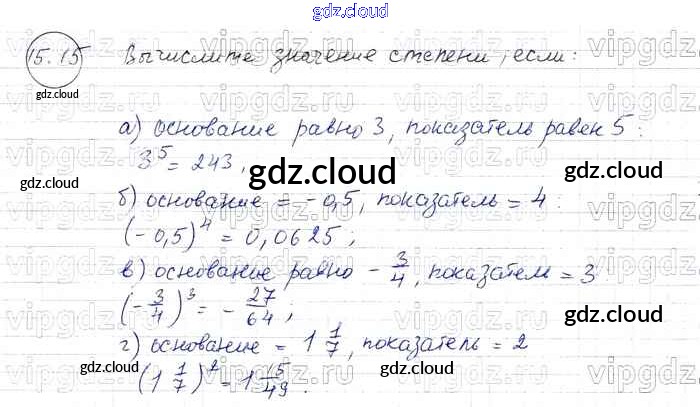 gdz.cloud
15.15 Вычислите значение степени, если:
gdz.cloud
а) основание равно 3, показатель равен 5:
3^5 = 243,
gdz.cloud
gdz.cloud
б) основание = -0,5, показатель = 4:
(-0,5)^4 = 0,0625;
gdz.cloud
в) основание равно -3/4, показател = 3
(-3/4)^3 = -27/64;
gdz.cloud
г) основание = 1 1/7, показатель = 2
gdz.cloud
gdz.cloud
(1 1/7)^2 = 1 15/49.